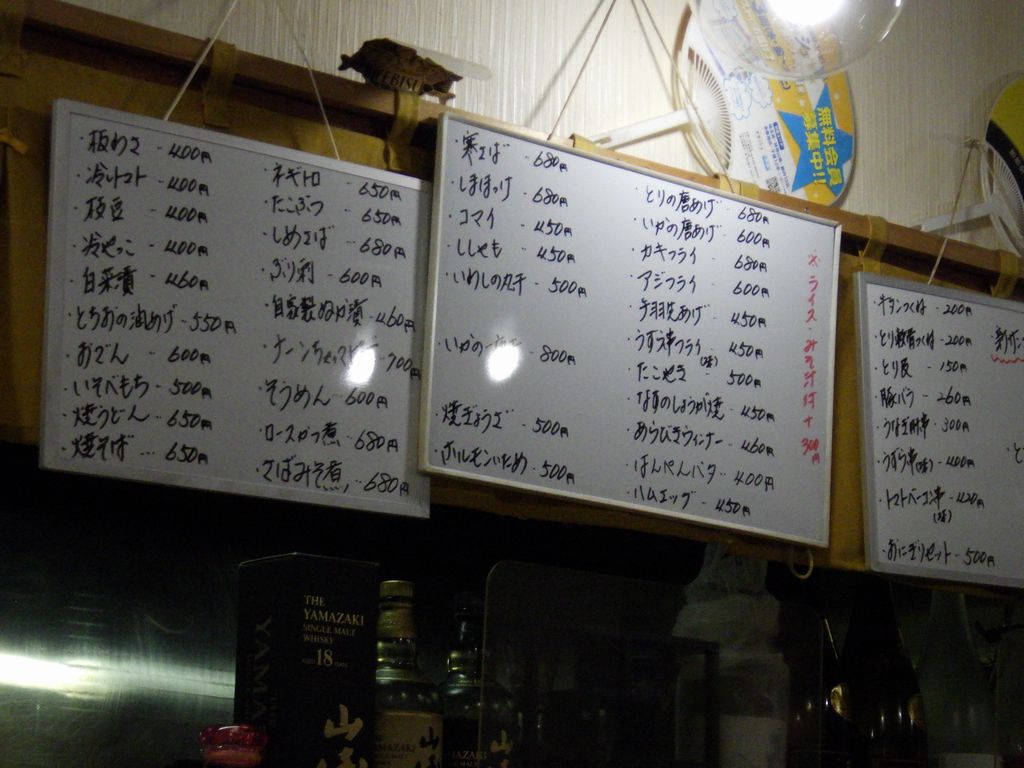 EBISU
無料会員
募集中!!
・板わさ - 400円
・冷トマト - 400円
・枝豆 - 400円
・冷やっこ - 400円
・白菜漬 - 460円
・とちおの油あげ - 550円
・おでん - 600円
・いそべもち - 500円
・焼うどん - 650円
・焼そば ... 650円
・ネギトロ - 650円
・たこぶつ - 650円
・しめさば - 680円
・ぶり刺 - 600円
・自家製ぬか漬 - 460円
700円
・そうめん - 600円
・ロースかつ煮 - 680円
・さばみそ煮 - 680円
・寒さば - 680円
・しまほっけ - 680円
・コマイ - 450円
・ししゃも - 450円
・いわしの丸干 - 500円
・いかの一夜干 - 800円
・焼ぎょうざ - 500円
・ホルモンいため - 500円
・とりの唐あげ - 680円
・いかの唐あげ - 600円
・カキフライ - 680円
・アジフライ - 600円
・手羽先あげ - 450円
・うずら串フライ(2本) - 450円
・たこやき - 500円
・なすのしょうが焼 - 450円
・あらびきウィンナー - 460円
・はんぺんバタ - 400円
・ハムエッグ - 450円
※ライス・みそ汁付 + 300円
・牛タンつくね - 200円
・とり軟骨つくね - 200円
・とり皮 - 150円
・豚バラ - 260円
・うなぎ肝串 - 300円
・うずら串(2本) - 400円
・トマトベーコン串(2本) - 420円
・おにぎりセット - 500円
THE
YAMAZAKI
SINGLE MALT
WHISKY
AGED 18 YEARS
山
YAMAZAKI
山
YAMAZAKI